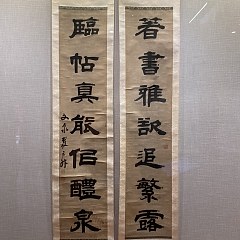 著書雅欲追繁露
臨帖真能侶醴泉